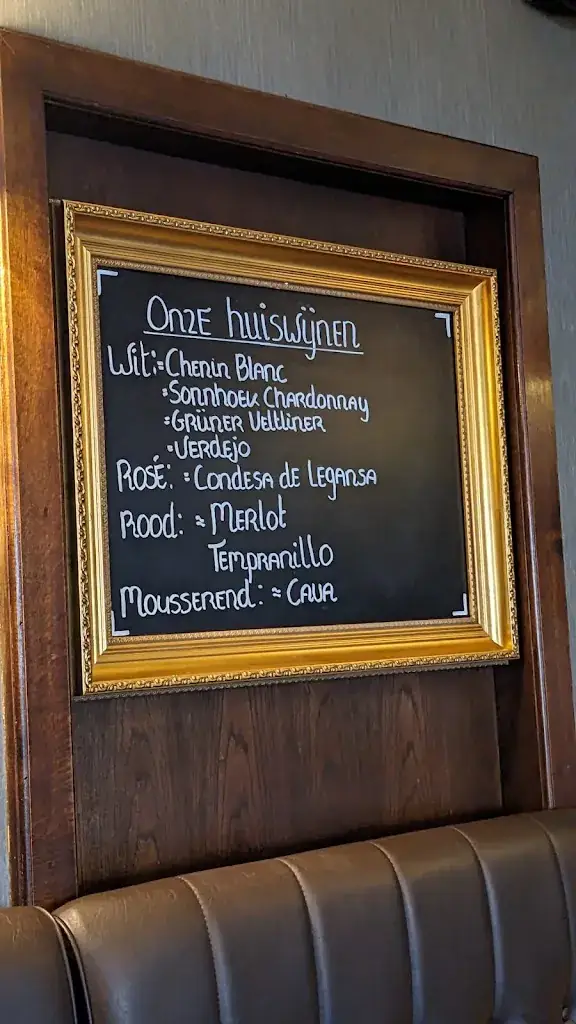 Onze huiswijnen
Wit: = Chenin Blanc
= Sonnhoek Chardonnay
= Grüner Veltliner
= Verdejo
Rosé: = Condesa de Legansa
Rood: = Merlot
Tempranillo
Mousserend: = Cava